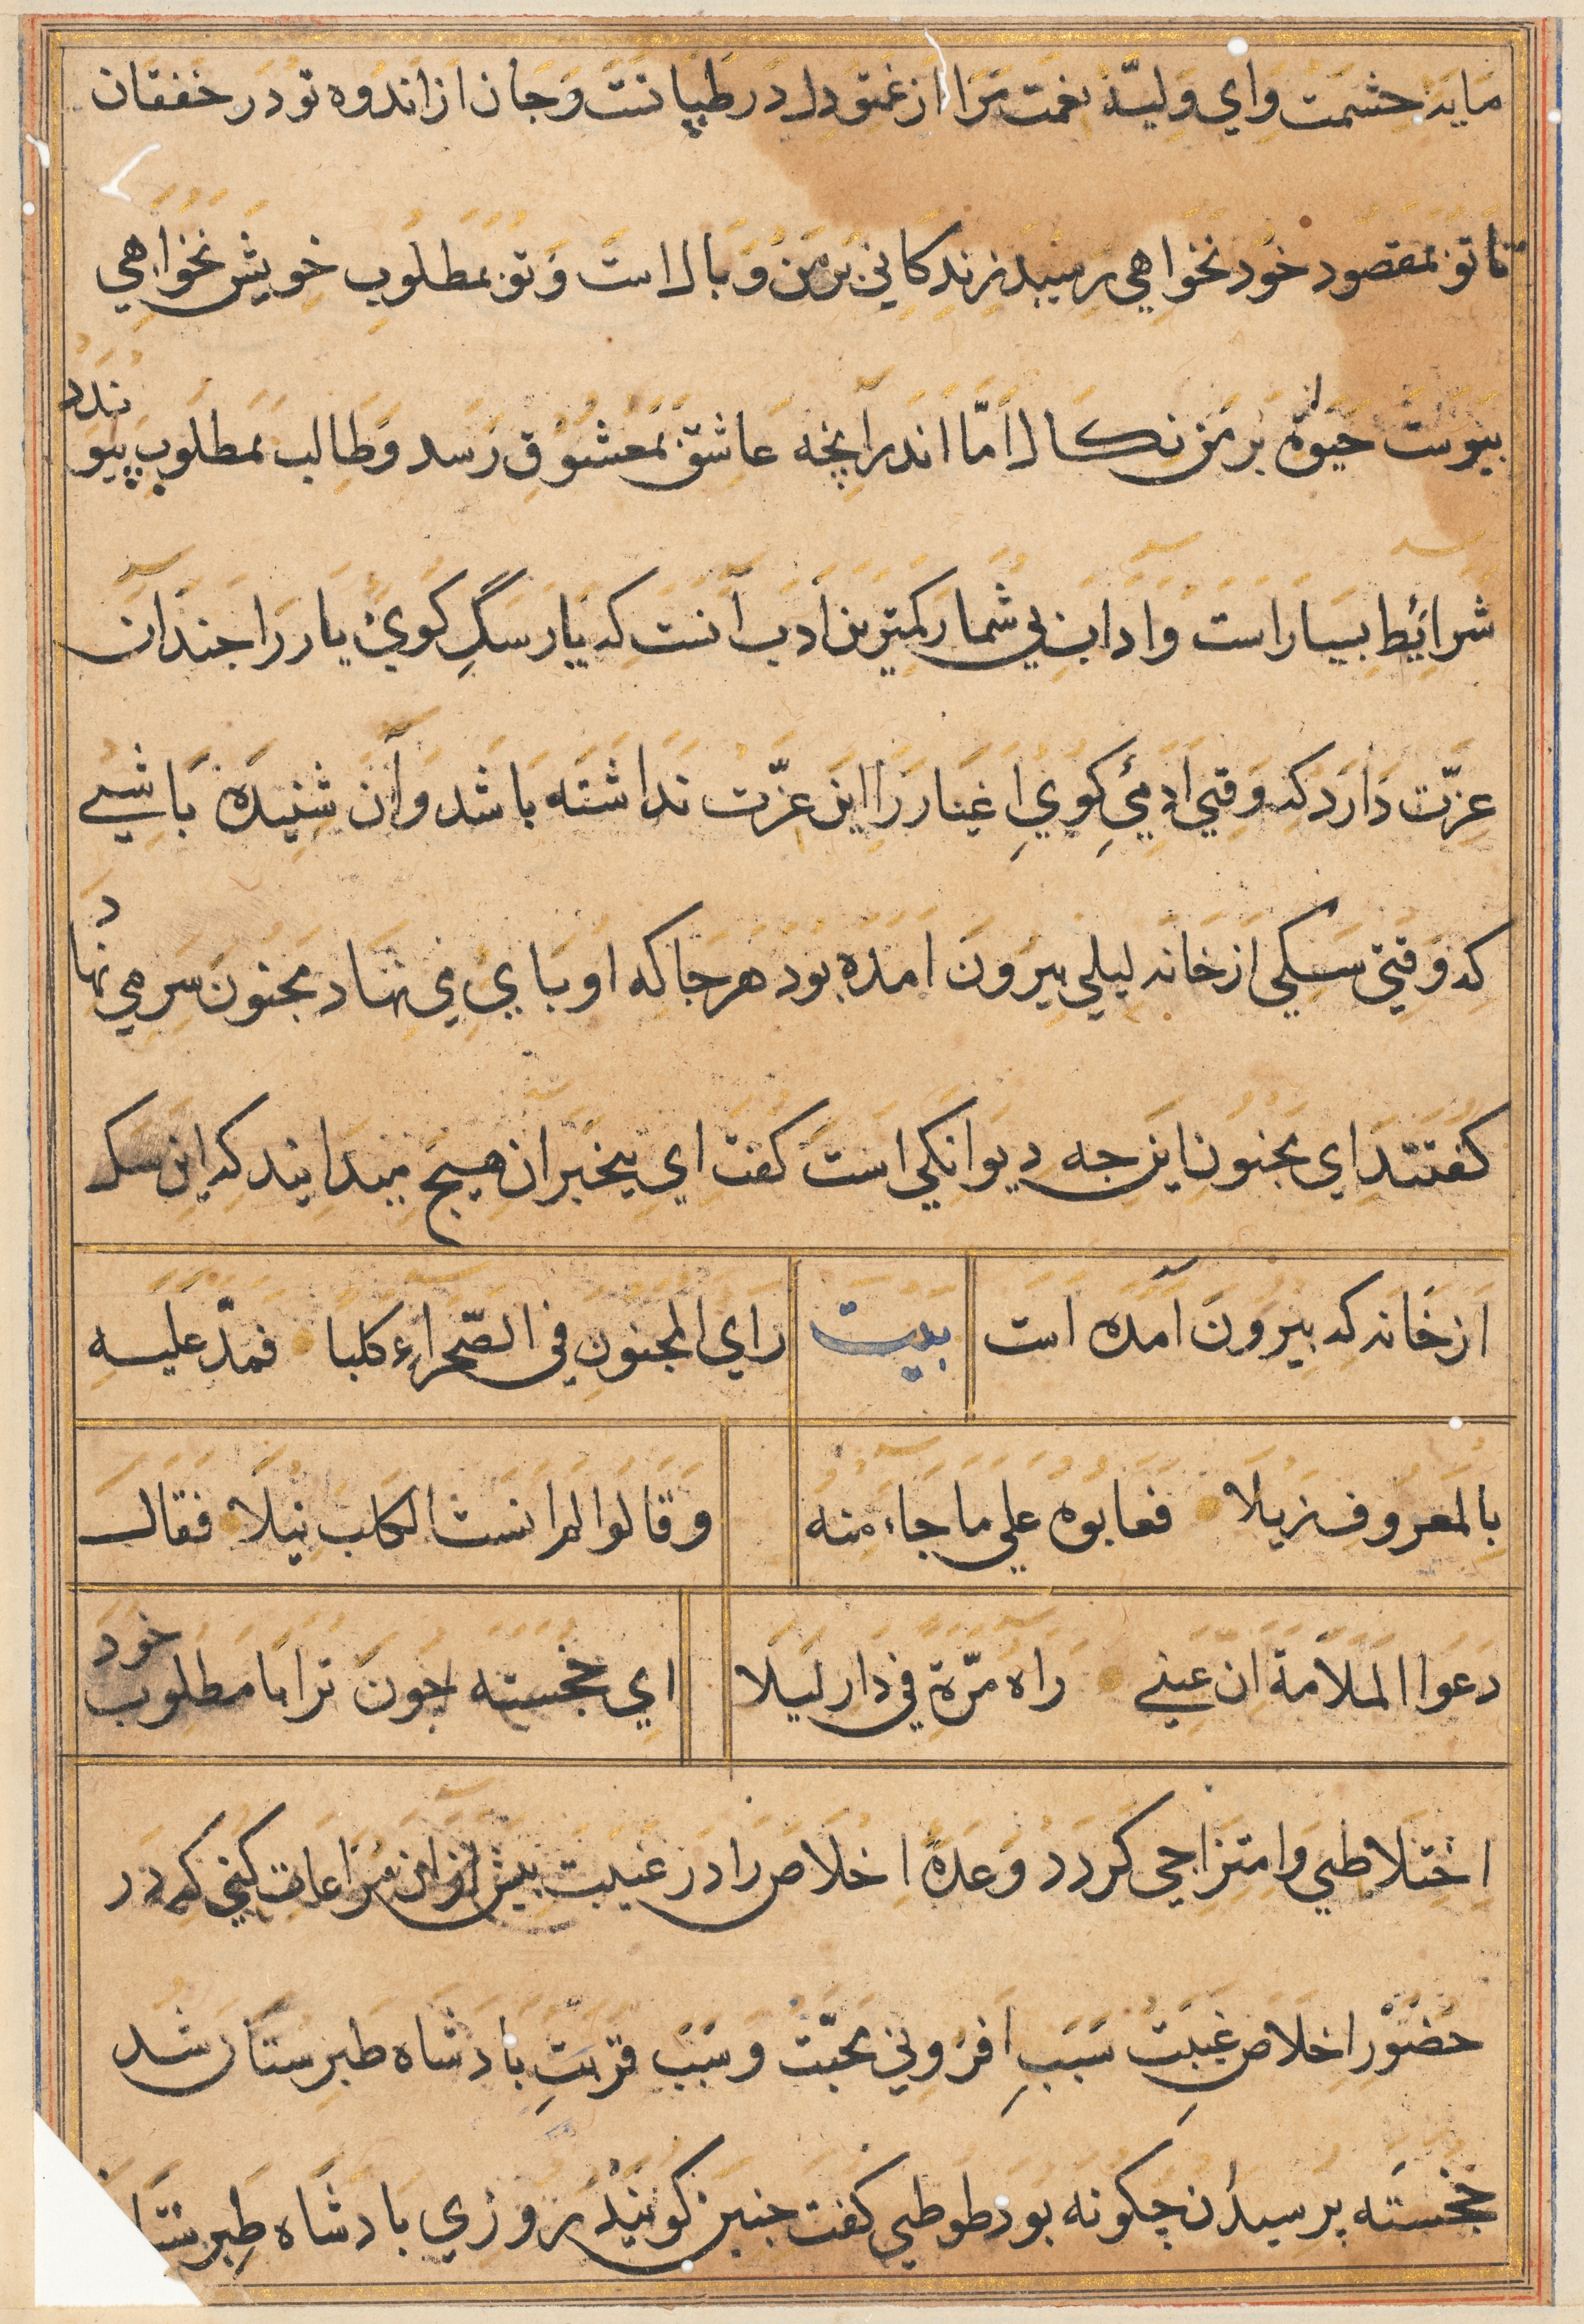 مایهٔ حشمت وای ولیّهٔ نعمت مرا از غم تو دل در طپیانست و جان از اندوه تو در خفقان
تا تو بمقصود خود نخواهی رسید زندکانی بر من وبال است و تو بمطلوب خویش نخواهی
پیوست حیوة بر من نکال امّا اندرآنچه عاشق بمعشوق رسد و طالب بمطلوب پیوندد
شرائط بسیار است و آداب بی شمار کمترین ادب آنست که یار سگ کوی یار را جندان
عزّت دارد که وقتی آدمی کوی اغیار را این عزّت نداشته باشد و آن شنیدهٔ باشی
که وقتی سکی از خانه لیلی بیرون امده بود هر جا که او بای می نهاد مجنون سر می نهاد
کفتند ای مجنون این جه دیوانکی است کفت ای بیخبران هیج میدانید که این سک
از خانه که بیرون آمده است بیت رای المجنون فی الصّحراء کلبا فمدّ علیه
بالمعروف زیلا فعابوه علی ما جاء منه وقالوا لم انست الکلب نیلا فقال
دعوا الملامة ان عینی راه مرّة فی دار لیلا ای خجسته جون ترا با مطلوب خود
اختلاطی و امتزاجی کردد وعدهٔ اخلاص را در غیبت بیش از ان مراعات کنی که در
حضور اخلاص غیبت سبب افزونی محبّت و سبب قربت بادشاه طبرستان شد
خجسته برسید آن چکونه بود طوطی کفت جنین کویند روزی بادشاه طبرستان